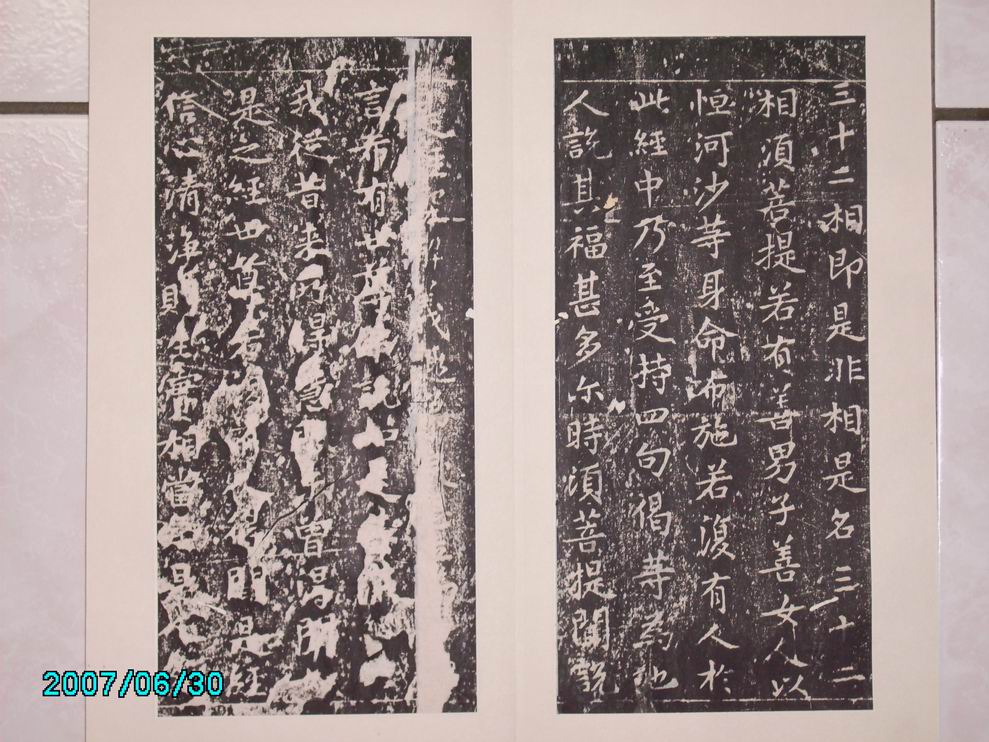 三十二相即是非相是名三十二
相須菩提若有善男子善女人以
恒河沙等身命布施若復有人於
此經中乃至受持四句偈等為他
人說其福甚多尔時須菩提聞說
是經深解義趣
言希有世尊佛說如是甚深
我從昔来所得慧眼未曾得聞
是之經世尊若復有人得聞是經
信心清淨則生實相當知是人
2007/06/30